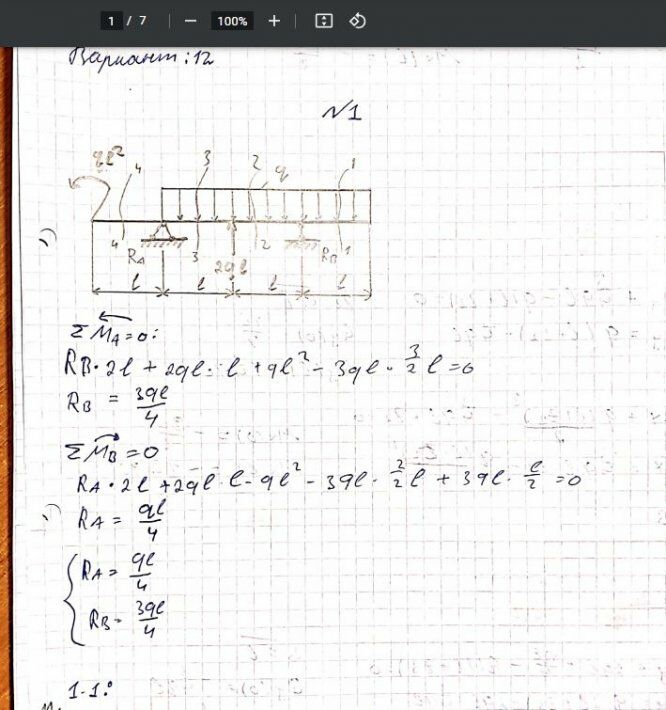 1 / 7 100%
Вариант: 12
№1
ql² 4 3 2 q 1
1)
4 RA 3 2ql 2 RB 1
l l l l
ΣMA=0:
RB·2l + 2ql·l + ql² - 3ql·3/2 l = 0
RB = 3ql/4
ΣMB=0
RA·2l + 2ql·l - ql² - 3ql· /2 l + 3ql·l/2 = 0
RA = ql/4
{ RA = ql/4
RB = 3ql/4
1-1: